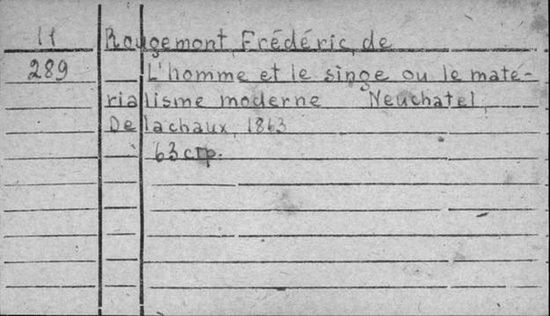 11 Rougemont, Frédéric, de
289 L'homme et le singe ou le maté-
rialisme moderne Neuchatel,
Delachaux, 1863
63 стр.